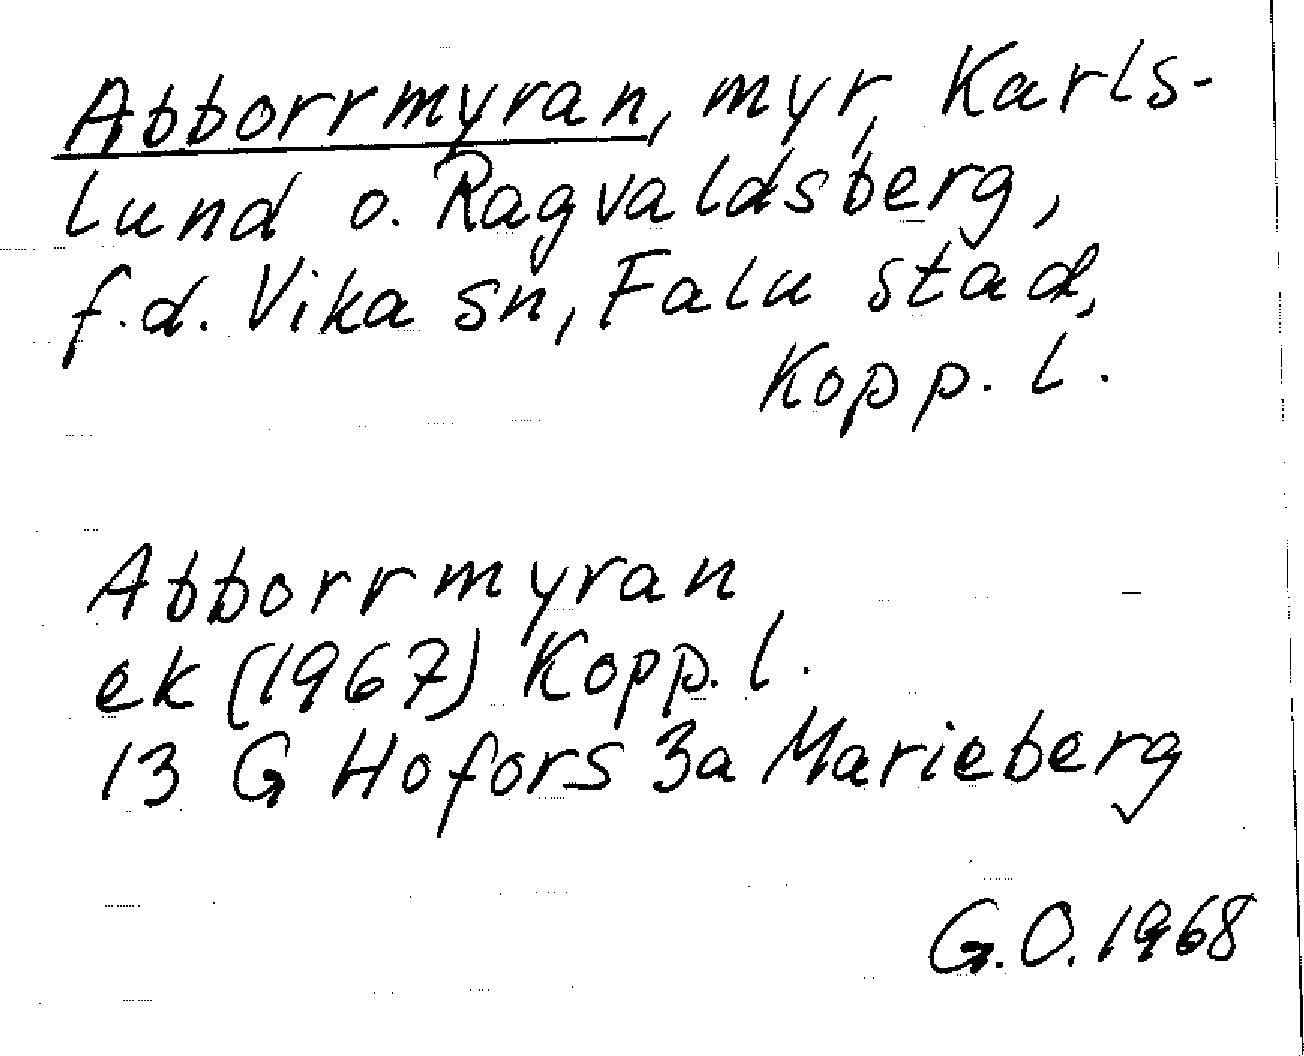 Abborrmyran, myr, Karls-
lund o. Ragvaldsberg,
f.d. Vika sn, Falu stad,
Kopp. l.
Abborrmyran
ek (1967) Kopp. l.
13 G Hofors 3a Marieberg
G.O. 1968